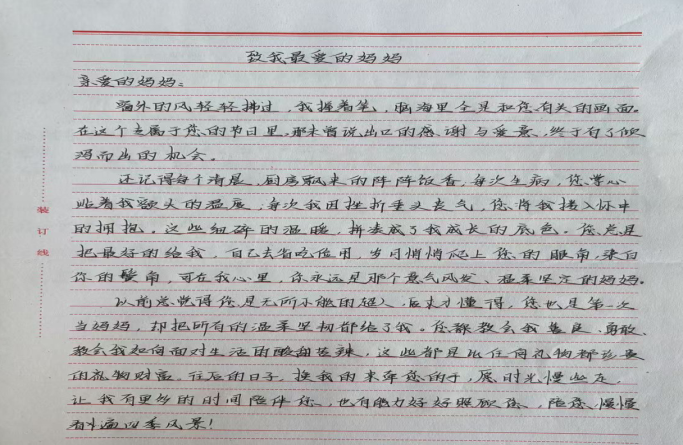 致我最爱的妈妈
亲爱的妈妈：
窗外的风轻轻拂过，我握着笔，脑海里全是和您有关的画面。
在这个专属于您的节日里，那未曾说出口的感谢与爱意，终于有了倾
泻而出的机会。
还记得每个清晨，厨房飘来的阵阵饭香，每次生病，您掌心
贴着我额头的温度，每次我因挫折垂头丧气，您将我搂入怀中
的拥抱。这些细碎的温暖，拼凑成了我成长的底色。您总是
把最好的给我，自己去省吃俭用，岁月悄悄爬上您的眼角，染白
你的鬓角，可在我心里，你永远是那个意气风发、温柔坚定的妈妈。
以前总觉得您是无所不能的超人，后来才懂得，您也是第一次
当妈妈，却把所有的温柔坚韧都给了我。您教会我善良、勇敢，
教会我如何面对生活的酸甜苦辣，这些都是比任何礼物都珍贵
的礼物财富。往后的日子，换我的来牵您的手，愿时光慢些走，
让我有更多的时间陪伴您，也有能力好好照顾您，陪您慢慢
看遍四季风景！
装
订
线